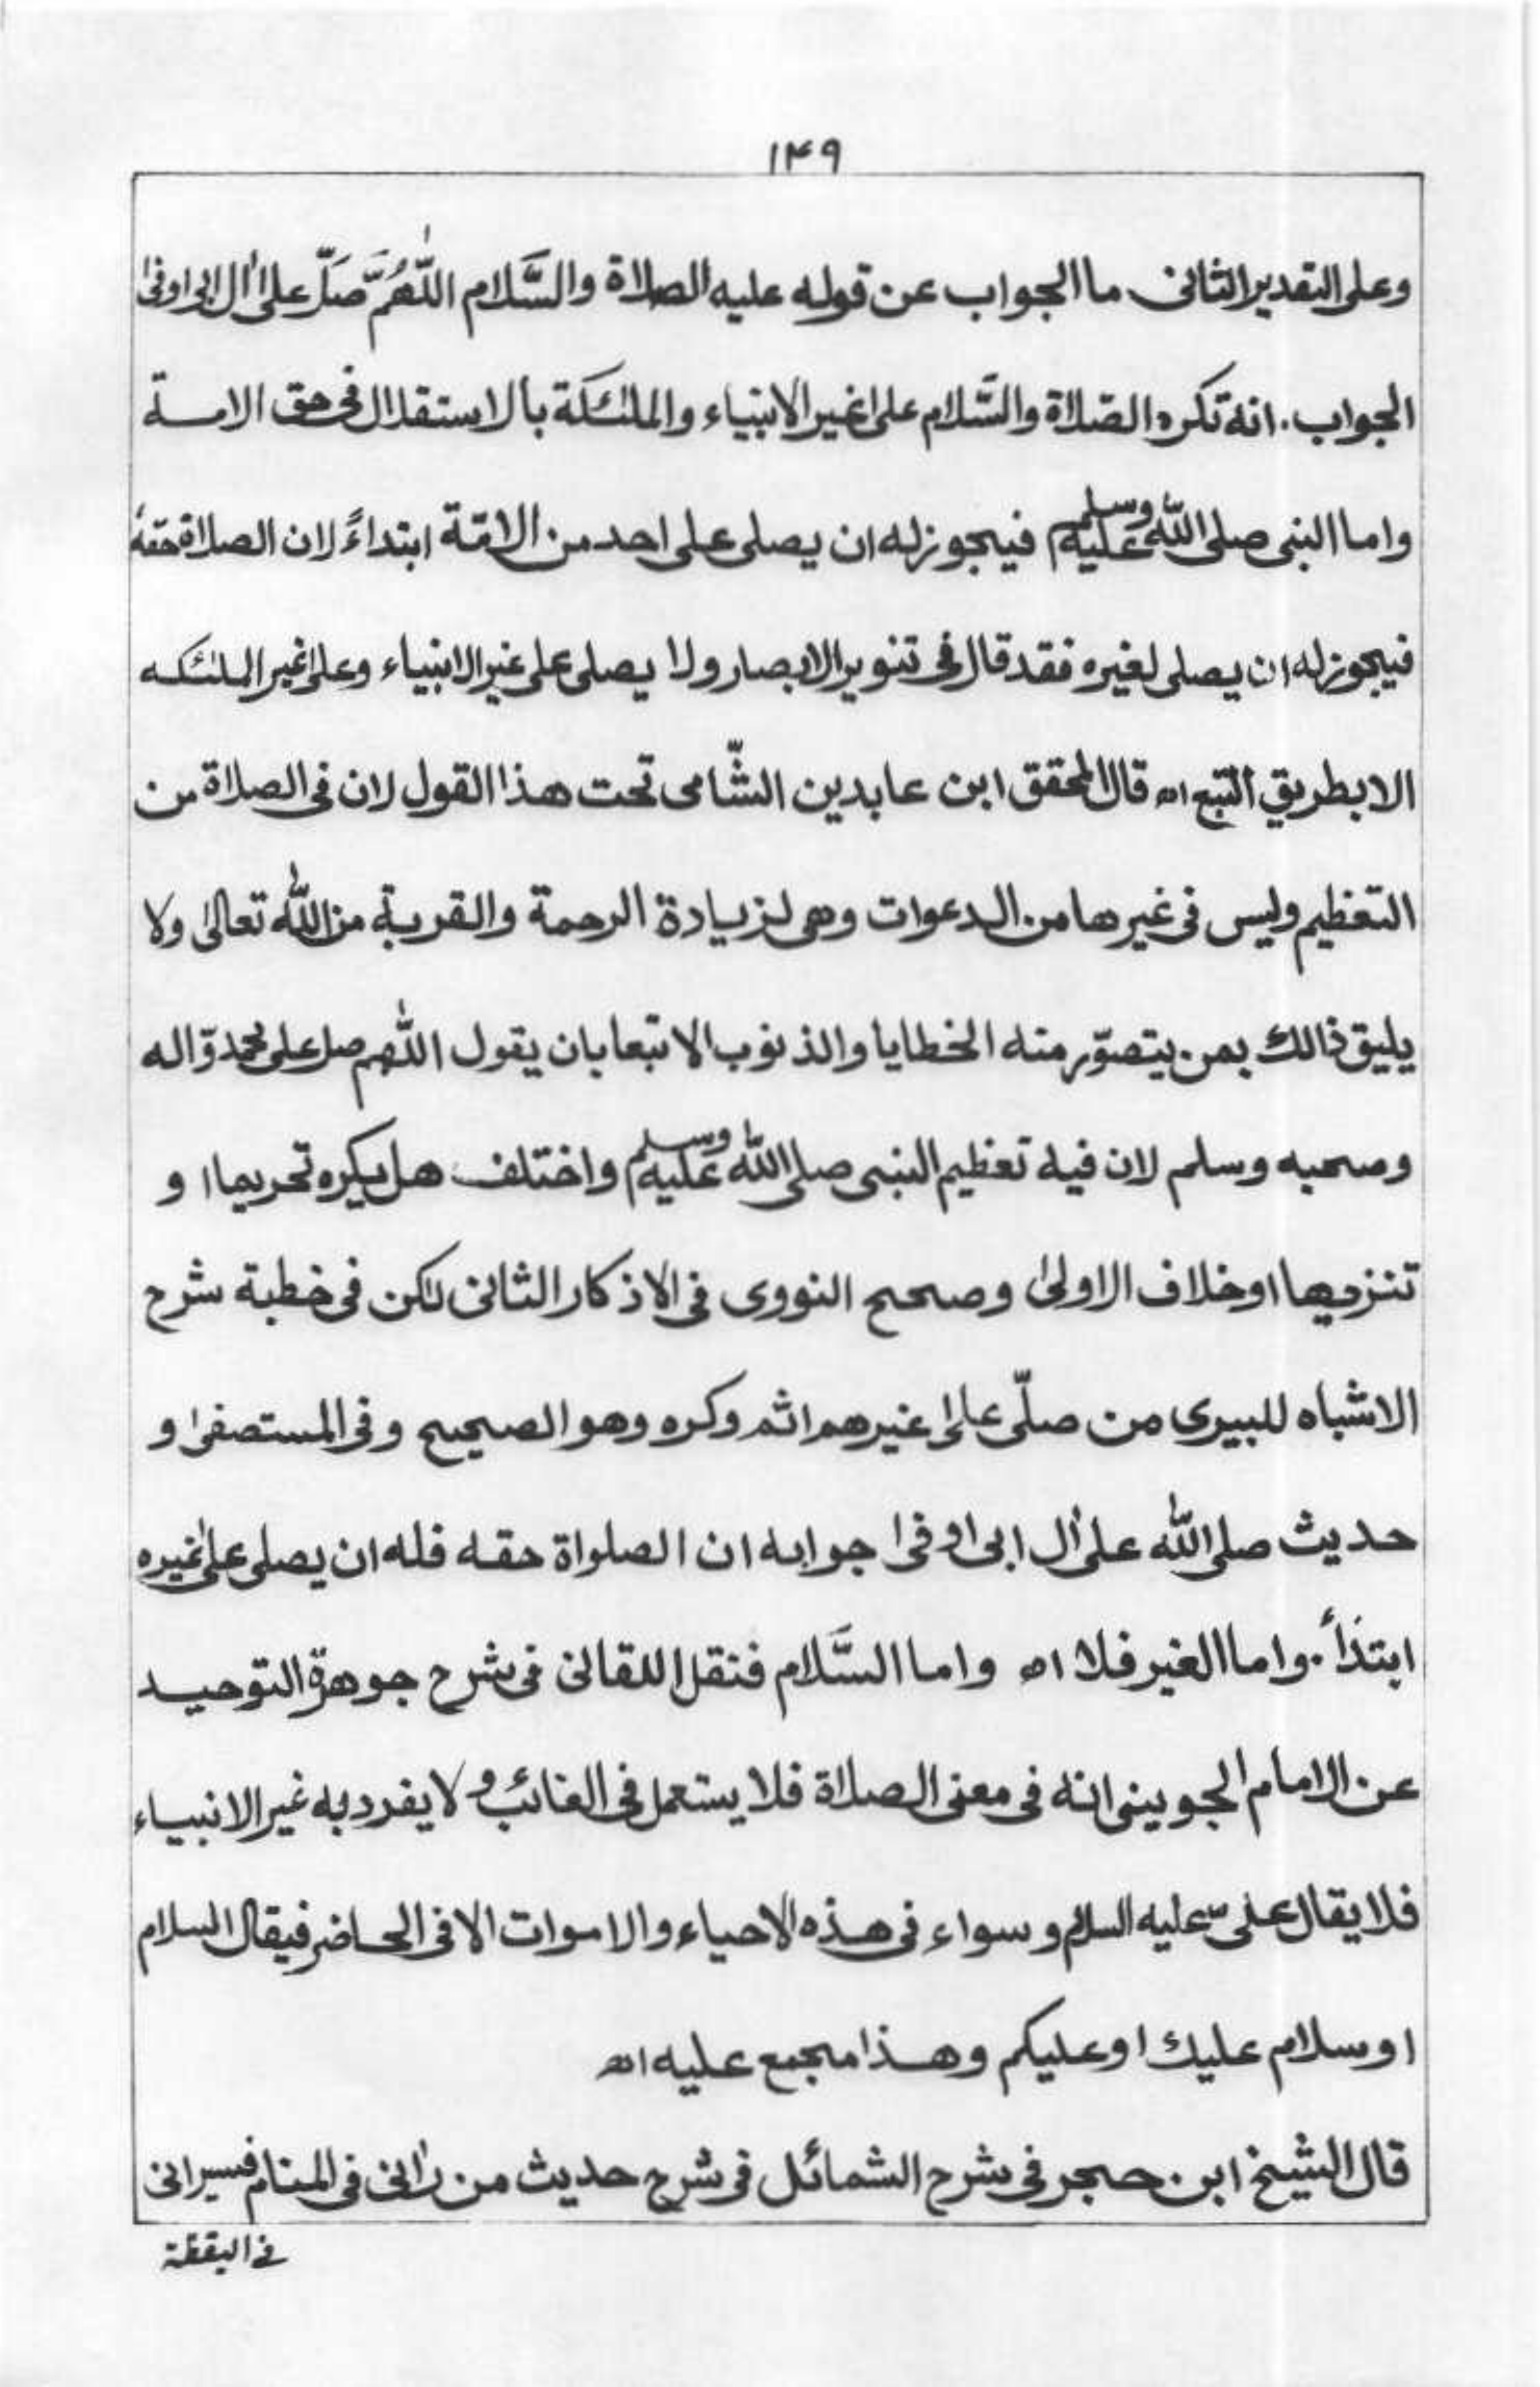 ۱۴۹
وعلى التقدير الثانى ما الجواب عن قوله عليه الصلاة والسَّلام اللّٰهُمَّ صَلّ على اٰل ابى اوفىٰ
الجواب. انه تكره الصّلاة والسَّلام على غير الانبياء والملئكة بالاستقلال فى حق الامة
واما النبى صلى الله عليه وسلم فيجوز له ان يصلى على احد من الامّة ابتداءً لان الصلاة حقهٗ
فيجوز له ان يصلى لغيره فقد قال فى تنوير الابصار ولا يصلى على غير الانبياء وعلى غير الملئكه
الا بطريق التبع اھ قال المحقق ابن عابدين الشّامى تحت هذا القول لان فى الصلاة من
التعظيم وليس فى غيرها من الدعوات وهى لزيادة الرحمة والقربة من الله تعالىٰ ولا
يليق ذالك بمن يتصوّر منه الخطايا والذنوب الا تبعا بان يقول اللّٰهم صل على محمد وّاله
وصحبه وسلم لان فيه تعظيم النبى صلى الله عليه وسلم واختلف هل يكره تحريما ا و
تنزيها او خلاف الاولىٰ وصحح النووى فى الاذكار الثانى لكن فى خطبة شرح
الاشباه للبيرى من صلّى على غيرهم اثم وكره وهو الصحيح وفى المستصفىٰ و
حديث صلى الله على اٰل ابى اوفىٰ جوابه ان الصلواة حقه فله ان يصلى علىٰ غيره
ابتدأ. واما الغير فلا اھ واما السَّلام فنقل اللقانى فى شرح جوهرة التوحيد
عن الامام الجوينى انه فى معنى الصلاة فلا يستعمل فى الغائب و لا يفرد به غير الانبياء
فلا يقال على عليه السلام وسواء فى هذه الاحياء والاموات الا فى الحاضر فيقال السلام
او سلام عليك او عليكم وهذا مجمع عليه اھ
قال الشيخ ابن حجر فى شرح الشمائل فى شرح حديث من راٰنى فى المنام فسيرانى
فى اليقظة